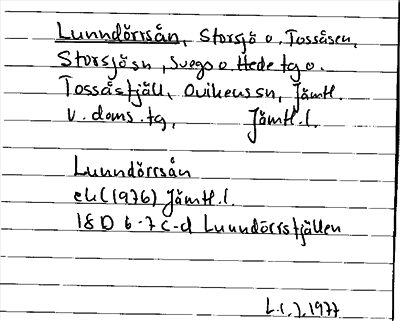 Lunndörrsån, Storsjö o. Tossåsen,
Storsjö sn, Svegs o. Hede tg o.
Tossåsfjäll, Ovikens sn, Jämtl.
v. doms. tg, Jämtl. l.
Lunndörrsån
ek (1976) Jämtl. l.
18 D 6-7 c-d Lunndörrsfjällen
1977